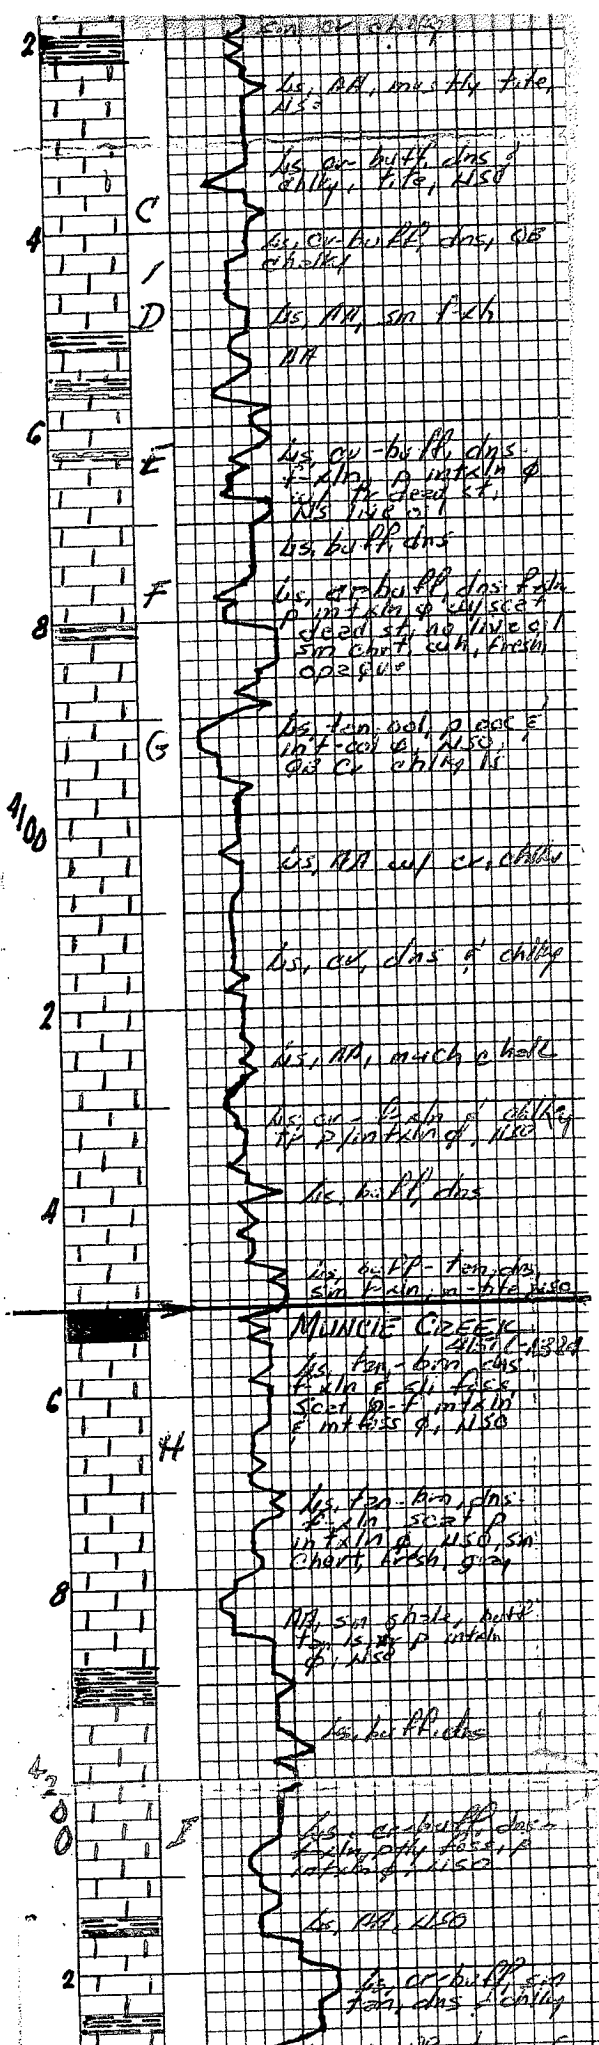 2
Ls, AA, mostly tite,
NSO
Ls cr-buff, dns &
chlky, tite, NSO
C
4
Ls, cr-buff, dns, OB
chalky
/
D
Ls, AA, sm f-xln
AA
6
E
Ls, cr-buff, dns-
f-xln, p intxln φ
w/ tr dead st,
NS live oil
Ls, buff, dns
F
Ls, cr-buff, dns-fxln
p intxln φ w/ scat
8
dead st, no live oil
sm chrt, wh, fresh,
opaque
G
Ls, tan, ool, p ooc &
int-ool φ, NSO,
OB cr chlky ls
4100
Ls, AA w/ cr, chlky
Ls, cr, dns & chlky
2
Ls, AA, much chalk
Ls, cr-f-xln & chlky
tr p/intxln φ, NSO
4
Ls, buff, dns
Ls, buff-tan, dns
sm f-xln, m-tite, NSO
MUNCIE CREEK
Ls, tan-brn, dns
f-xln & sli foss,
6
scat p-f intxln
& intfoss φ, NSO
H
Ls, tan-brn, dns-
f-xln scat p
intxln φ, NSO, sm
chert, fresh, gray
8
AA, sm shale, buff
tan ls, tr p intxln
φ, NSO
Ls, buff, dns
4200
I
Ls, cr-buff, dns-
fxln, ptly foss, p
intxln φ, NSO
Ls, AA, NSO
2
Ls, cr-buff, sm
tan, dns & chlky